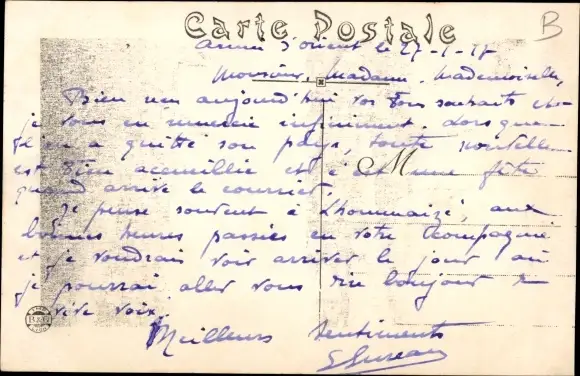 Carte Postale
B
Armée d'orient le 27-1-17
Monsieur, Madame, Mademoiselle,
Bien reçu aujourd'hui vos bons souhaits et
je vous en remercie infiniment. Lorsque
l'on a quitté son pays, toute nouvelle
est bien accueillie et c'est une fête
quand arrive le courrier.
M
Je pense souvent à Lhommaizé, aux
bonnes heures passées en votre compagnie
et je voudrais voir arriver le jour où
je pourrai aller vous dire bonjour de
vive voix.
Meilleurs Sentiments